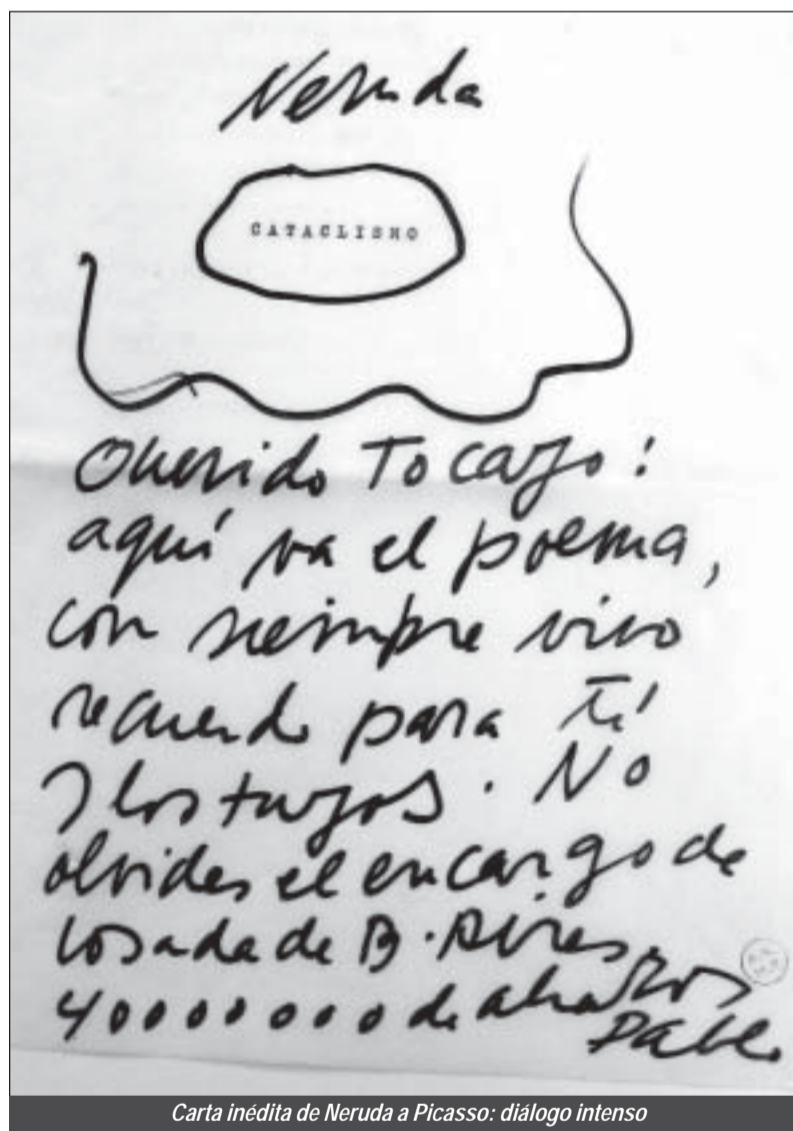 Neruda
CATACLISMO
Querido Tocayo!
aquí va el poema,
con siempre vivo
recuerdo para ti
y los tuyos. No
olvides el encargo de
Losada de B. Aires.
40000000 de abrazos
Pablo
Carta inédita de Neruda a Picasso: diálogo intenso